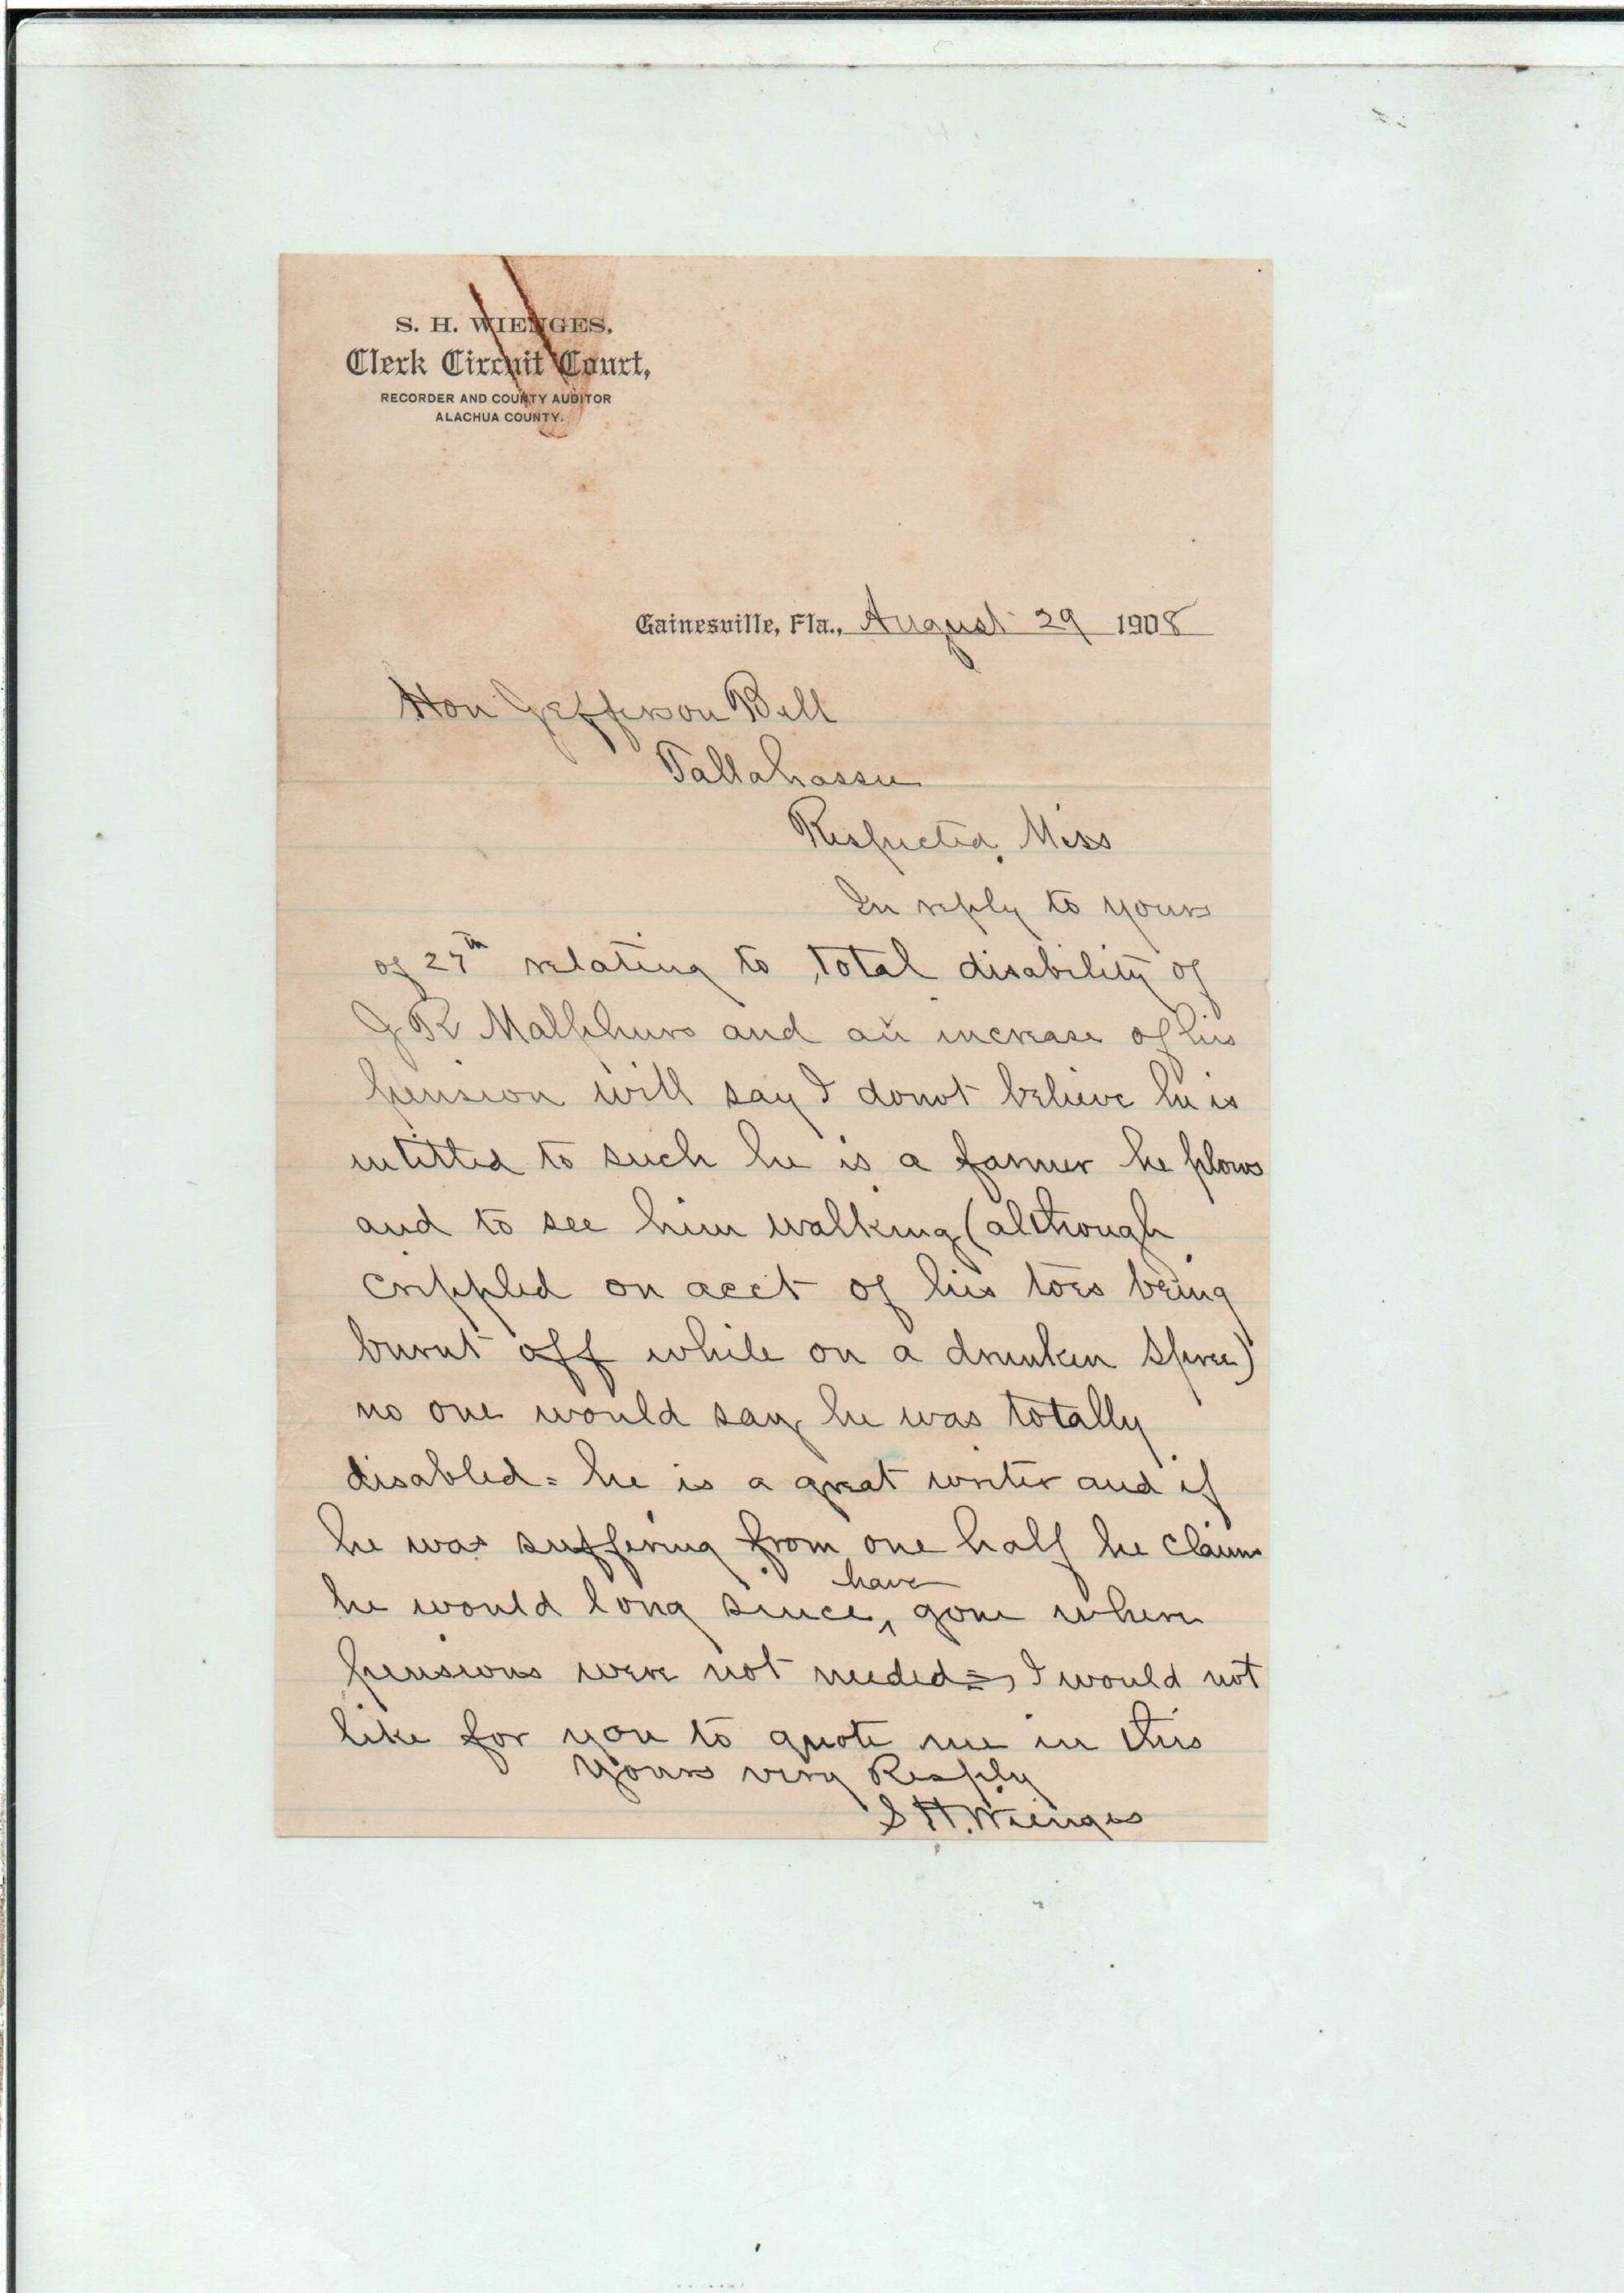 S. H. WIENGES,
Clerk Circuit Court,
RECORDER AND COUNTY AUDITOR
ALACHUA COUNTY.
Gainesville, Fla., August 29 1908
Hon Jefferson Bell
Tallahassee
Respected Miss
In reply to yours
of 27th relating to total disability of
J R Malphurs and an increase of his
pension will say I donot believe he is
intitled to such he is a farmer he plows
and to see him walking (although
crippled on acct of his toes being
burnt off while on a drunken spree)
no one would say he was totally
disabled = he is a great writer and if
he was suffering from one half he claims
he would long since have gone where
pensions were not needed = I would not
like for you to quote me in this
Yours very Resply
S H. Wienges